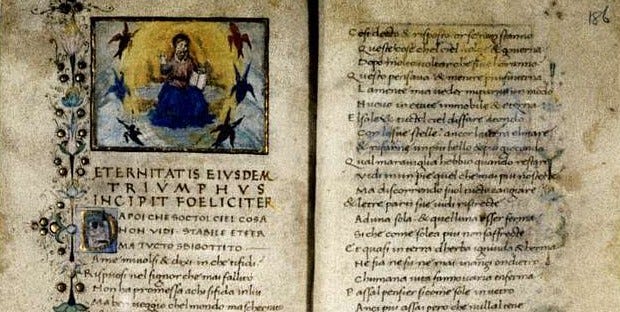 ETERNITATIS EIVSDEM
TRIVMPHVS
INCIPIT FOELICITER
DAPOI CHE SOCTOL CIEL COSA
NON VIDI STABILE ET FER
MA TVCTO SBIGOTTITO
A me mi volsi & dixi in che ti fidi
Risposi nel signor che mai fallito
Non ha promessa achi sifida in lui
Ma ben veggio chel mondo ma schernito
186
Cosi decto & risposto or se non stanno
Queste cose chel ciel volge & governa
Dopo molto voltar che fine haranno
Questo pensava & mentre piu sinterna
La mente mia veder mi parve un modo
Nuovo in etate immobile & eterna
El sole & tuctol ciel disfare atondo
Con le sue stelle anchor la terra el mare
& rifarne un piu bello & piu giocondo
Qual maraviglia hebbio quando restare
Vidi in un pie quel che mai non stette
Ma discorrendo suol tucto cangiare
& le tre parti sue vidi ristrecte
Ad una sola & quella una esser ferma
Si che come solea piu non saffrecte
Et quasi in terra dherba ignuda & herma
Ne fia ne fu ne mai inanzi o indietro
Chumana vita fa varia e inferma
Passal pensier si come sole in vetro
Anci piu assai pero che nulla il tene